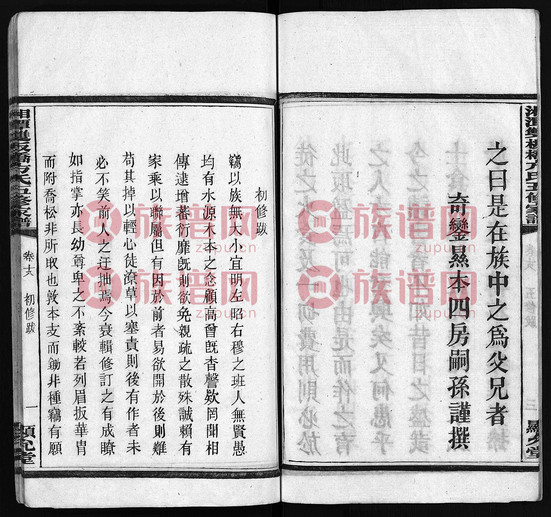 湘潭雙板橋方氏五修家譜
之曰是在族中之為父兄者
奇鑾
本四房嗣孫謹撰
五修跋
初修跋
竊以族無大小宜明左昭右穆之班人無賢愚
均有水源木本之念顧高曾既杳謦欬罔聞相
傳遠增蕃衍靡既動欲免親疏之散殊誠賴有
家乘以聯屬但有於前者易欲開於後則難
苟其掉以輕心徒潦草以塞責則後有作者未
必不笑前人之迂拙焉今裒輯修訂之有成瞭
如指掌亦長幼尊卑之不紊較若列眉扳華胄
而附喬松非所取也敦本支而鋤非種竊有願
湘潭雙板橋方氏五修家譜
初修跋
一
族谱网
zupu.cn